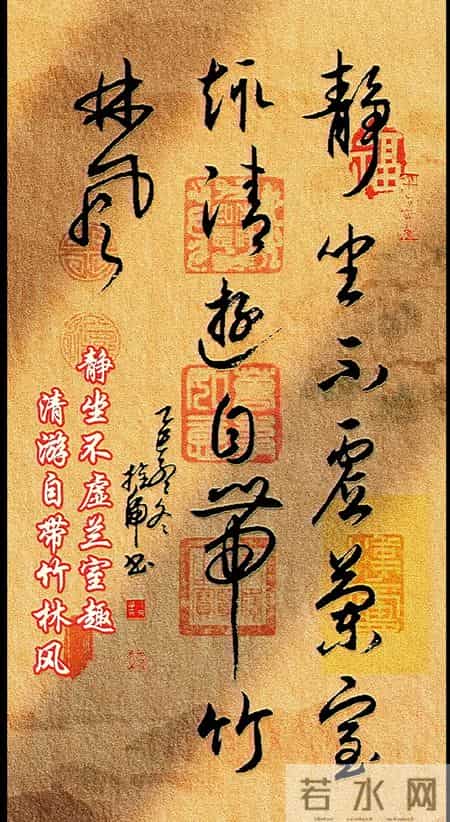 静坐不虚蘭室
趣清遊自带竹
林風
静坐不虚兰室趣
清游自带竹林风
若水网